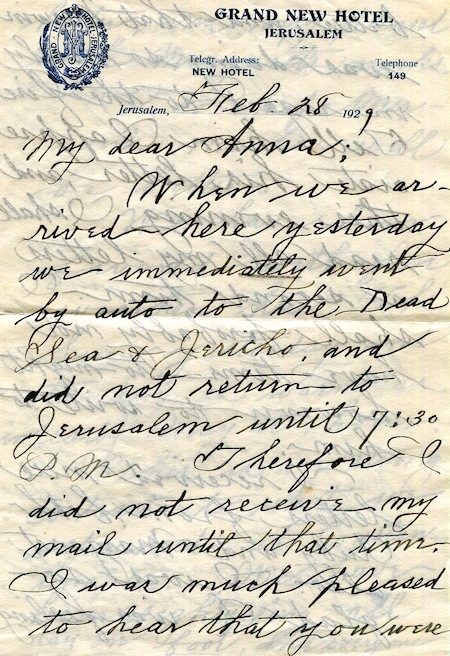 GRAND NEW HOTEL
JERUSALEM
Telegr. Address:
NEW HOTEL
Telephone
149
GRAND NEW HOTEL JERUSALEM
Jerusalem, Feb. 28 1929
My dear Anna;
When we ar-
rived here yesterday
we immediately went
by auto to the Dead
Sea & Jericho, and
did not return to
Jerusalem until 7:30
P.M. Therefore I
did not receive my
mail until that time.
I was much pleased
to hear that you were